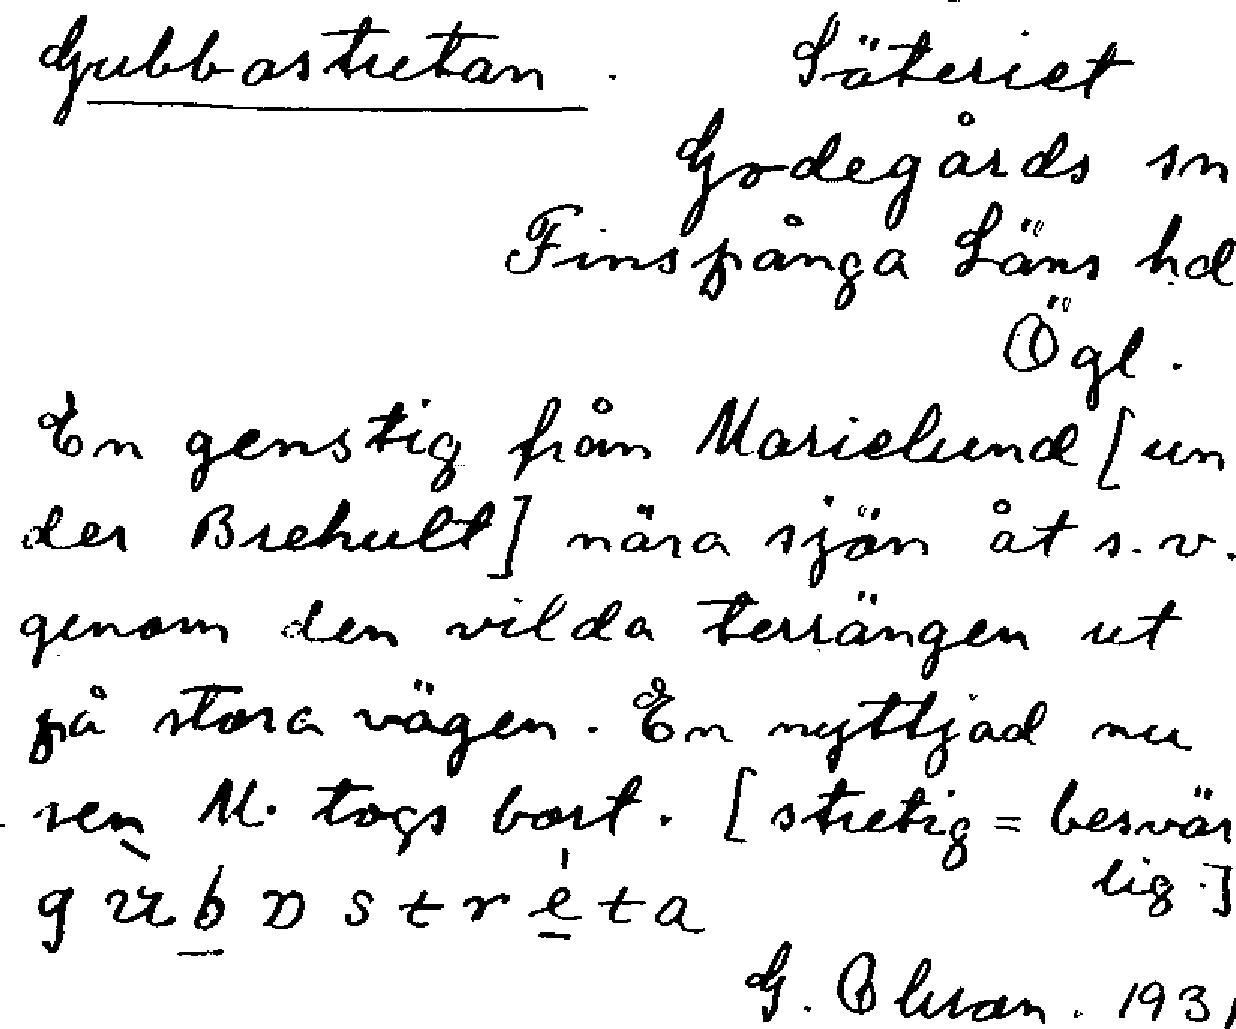 Gubbastretan. Säteriet
Godegårds sn
Finspånga Läns hd
Ögl.
En genstig från Marielund [un
der Brehult] nära sjön åt s.v.
genom den vilda terrängen ut
på stora vägen. En nyttjad nu
sen M. togs bort. [stretig = besvär
lig.]
G. Olson. 1931